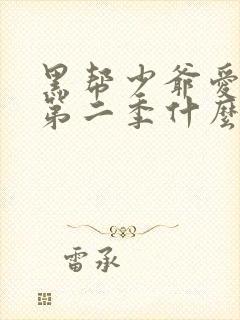 黑帮少爷爱
第二季什麼
雷承